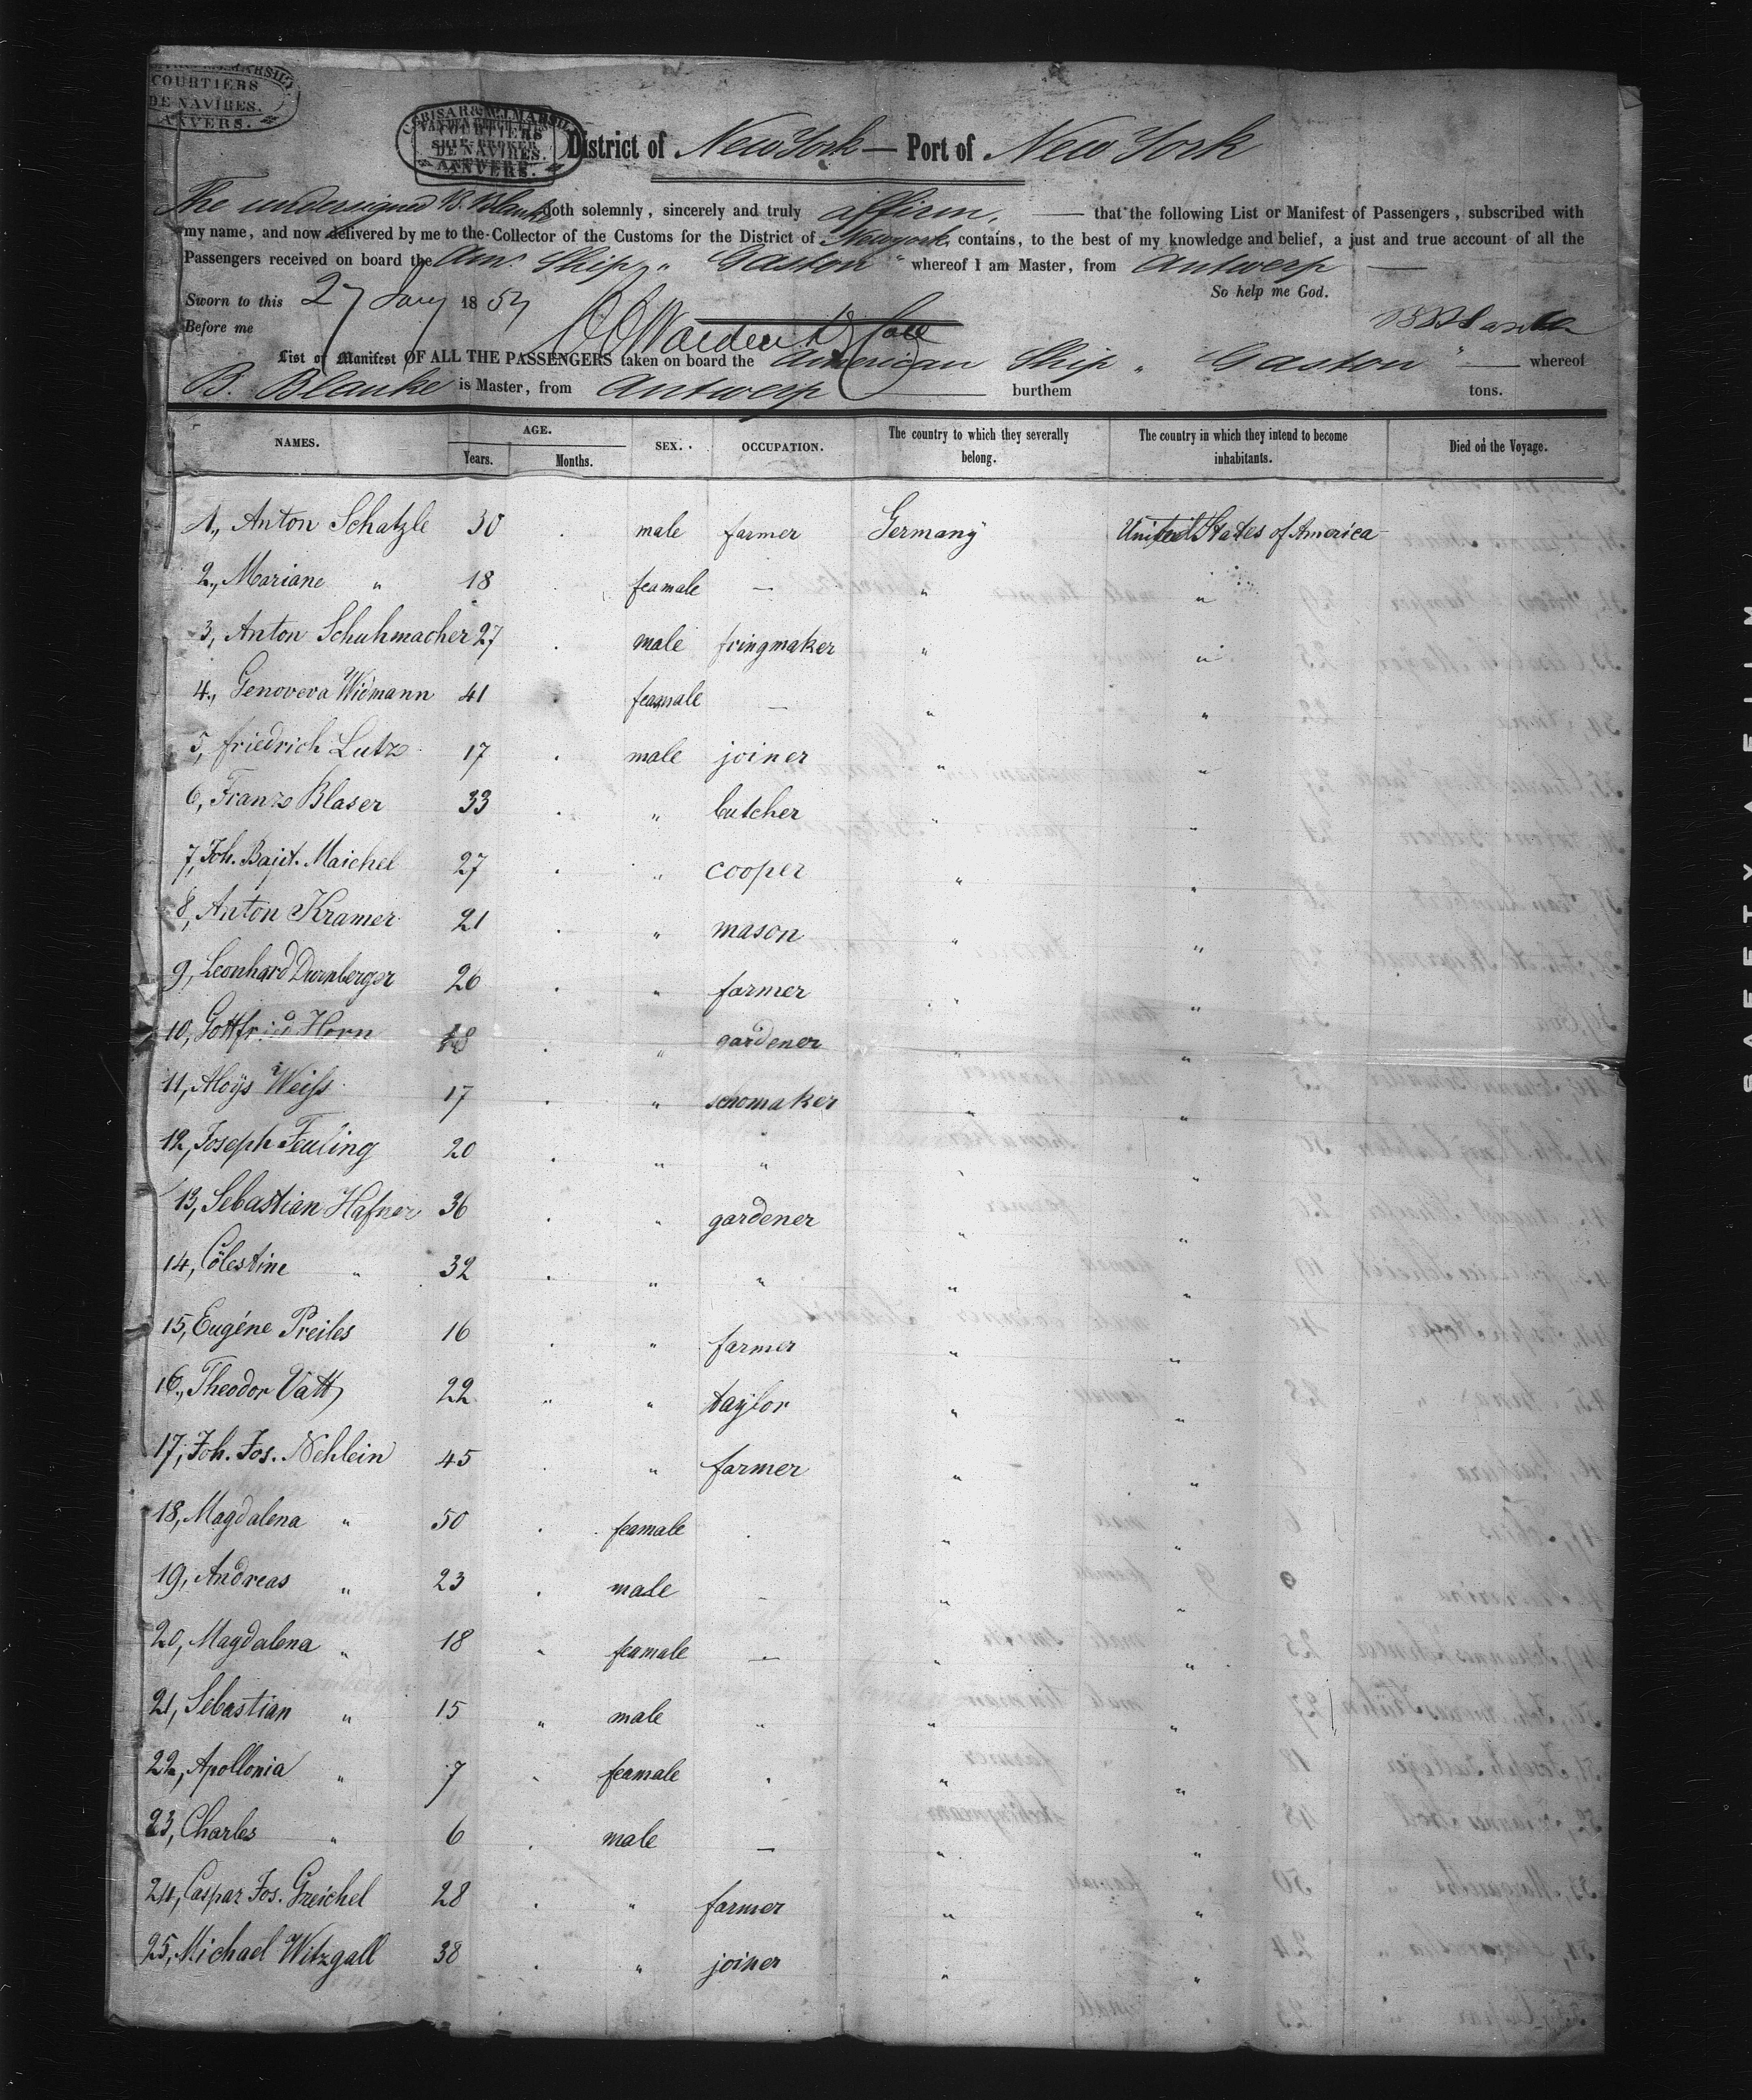 COURTIERS
DE NAVIRES.
ANVERS.
COURTIERS
DE NAVIRES.
ANVERS.
District of New York — Port of New York
The undersigned B. Blanke doth solemnly, sincerely and truly affirm, — that the following List or Manifest of Passengers, subscribed with
my name, and now delivered by me to the Collector of the Customs for the District of Newyork contains, to the best of my knowledge and belief, a just and true account of all the
Passengers received on board the Am. Ship " Gaston " whereof I am Master, from Antwerp —
So help me God.
Sworn to this 27 Jany 1854
Before me
B Blanke
List or Manifest OF ALL THE PASSENGERS taken on board the American Ship " Gaston " — whereof
B. Blanke is Master, from Antwerp — burthem tons.
NAMES. AGE. SEX. OCCUPATION. The country to which they severally belong. The country in which they intend to become inhabitants. Died on the Voyage.
Years. Months.
1., Anton Schatzle 30 . male farmer Germany United States of America
2., Mariane " 18 . feamale — " "
3, Anton Schuhmacher 27 . male fringmaker " "
4., Genoveva Widmann 41 . feamale — " "
5, friedrich Lutz 17 . male joiner " "
6, Franz Blaser 33 . " butcher " "
7, Joh. Bapt. Maichel 27 . " cooper " "
8, Anton Kramer 21 . " mason " "
9, Leonhard Durnberger 26 . " farmer " "
10, Gottfried Horn 18 . " gardener " "
11, Aloÿs Weiss 17 . " schomaker " "
12, Joseph Feuling 20 . " " " "
13, Sebastian Hafner 36 . " gardener " "
14, Cölestine " 32 . " " " "
15, Eugéne Preiles 16 . " farmer " "
16., Theodor Vatt 22 " " taylor " "
17, Joh. Jos. Nehlein 45 . " farmer " "
18, Magdalena " 50 . feamale . " "
19, Andreas " 23 . male - " "
20, Magdalena " 18 " feamale — " "
21, Sebastian " 15 " male " " "
22, Apollonia " 7 . feamale . " "
23, Charles " 6 . male — " "
24, Caspar Jos. Greichel 28 . " farmer " "
25, Michael Witzgall 38 . " joiner " "
SAFETY FILM